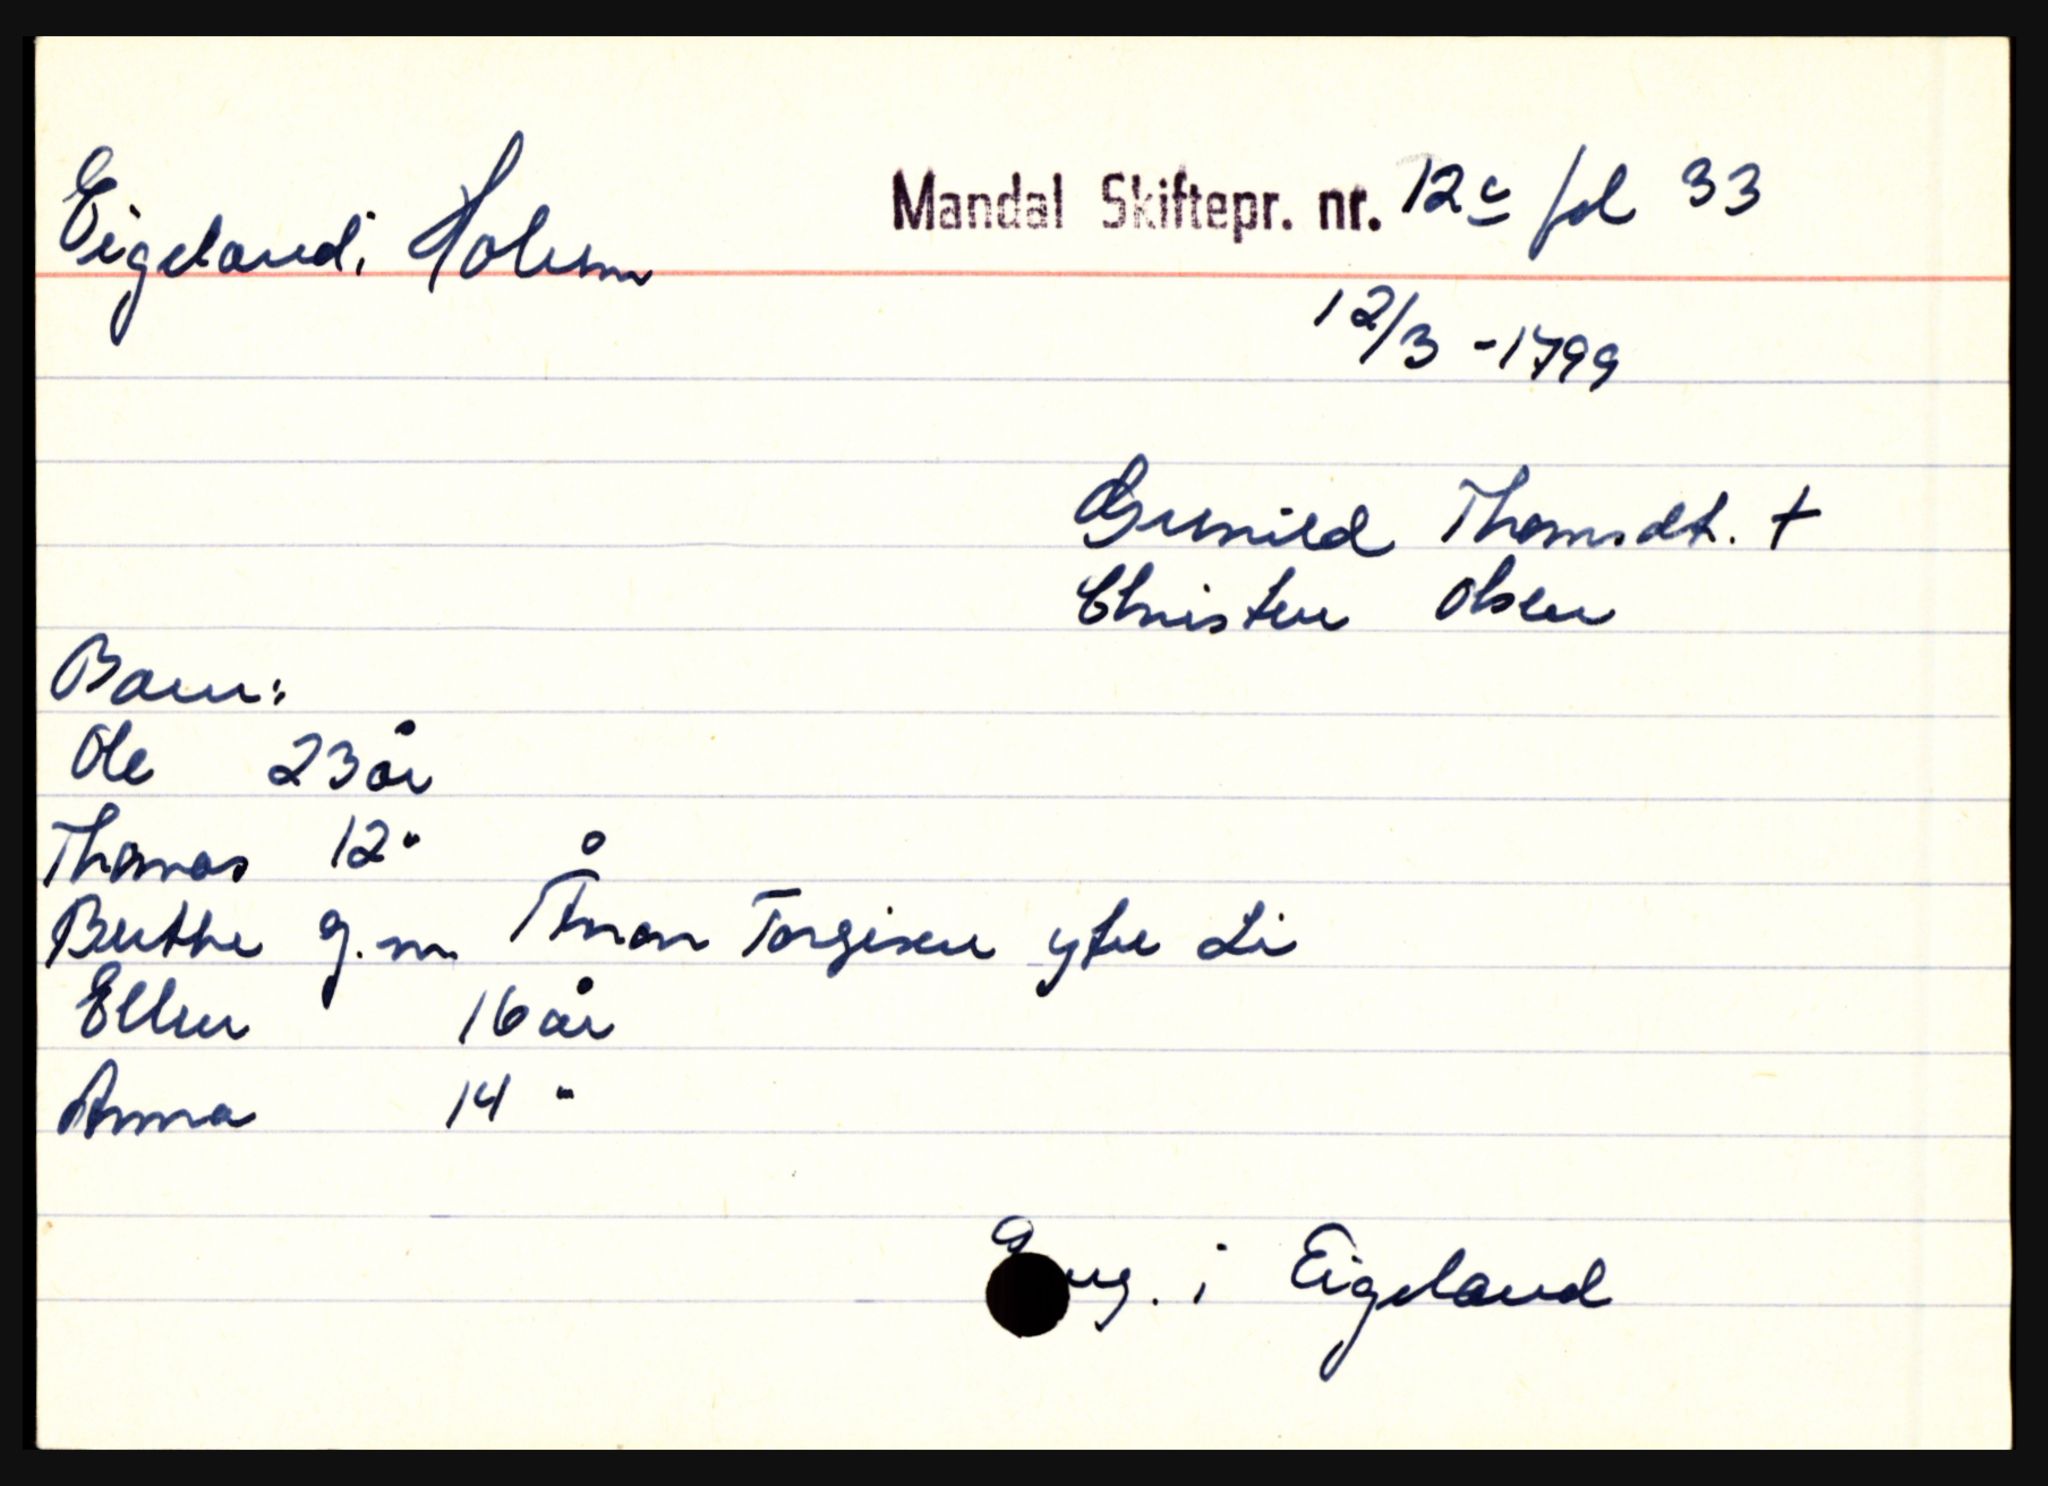 Eigeland, Holum Mandal Skiftepr. nr. 12c fol 33
12/3 - 1799
Gunild Thomsdt. +
Christen Olsen
Barn:
Ole 23 år
Thomas 12 "
Berthe g.m. Ånon Torgisen ytre Li
Ellen 16 år
Anna 14 "
i Eigeland